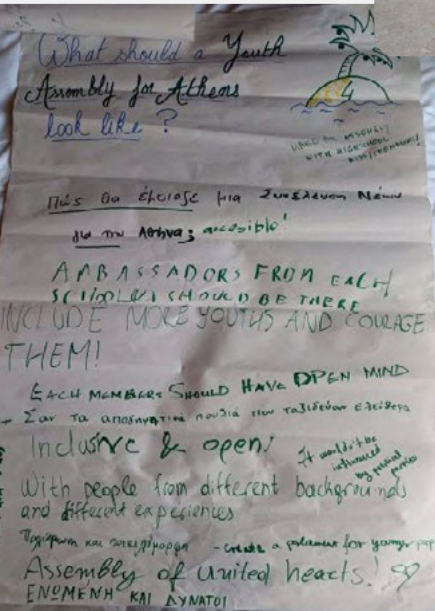 What should a Youth
Assembly for Athens
look like ?
MAKE AN ASSEMBLY
WITH HIGH SCHOOL
Πώς θα έμοιαζε μια Συνέλευση Νέων
για την Αθήνα; accessible!
AMBASSADORS FROM EACH
SCHOOL SHOULD BE THERE
INCLUDE MORE YOUTHS AND COURAGE
THEM!
EACH MEMBERS SHOULD HAVE OPEN MIND
Σαν τα αποδημητικά πουλιά που ταξιδεύουν ελεύθερα
Inclusive & open!
It wouldn't be
influenced
by
With people from different backgrounds
and different experiences
και - create a parliament for younger
Assembly of united hearts!
ΕΝΩΜΕΝΗ ΚΑΙ ΔΥΝΑΤΟΙ